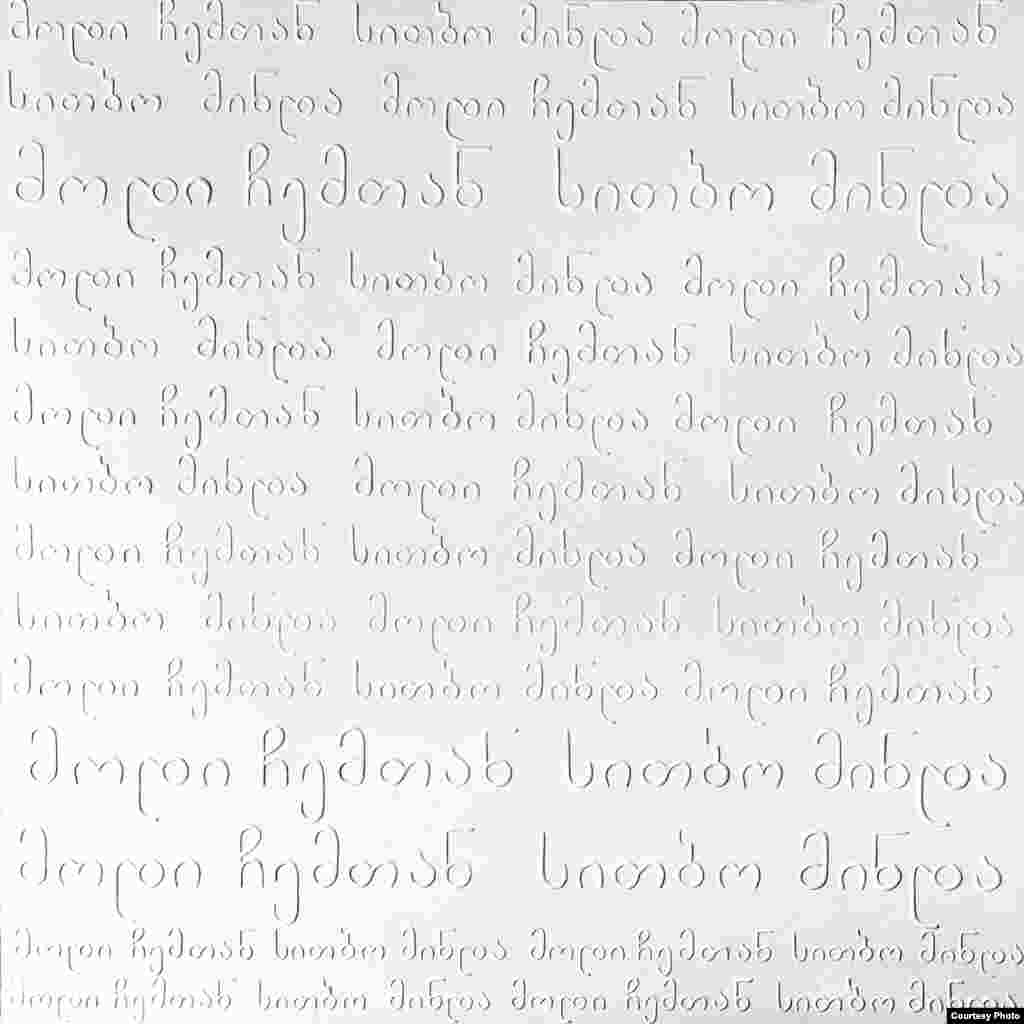 მოდი ჩემთან სითბო მინდა მოდი ჩემთან
სითბო მინდა მოდი ჩემთან სითბო მინდა
მოდი ჩემთან სითბო მინდა
მოდი ჩემთან სითბო მინდა მოდი ჩემთან
სითბო მინდა მოდი ჩემთან სითბო მინდა
მოდი ჩემთან სითბო მინდა მოდი ჩემთან
სითბო მინდა მოდი ჩემთან სითბო მინდა
მოდი ჩემთან სითბო მინდა მოდი ჩემთან
სითბო მინდა მოდი ჩემთან სითბო მინდა
მოდი ჩემთან სითბო მინდა მოდი ჩემთან
მოდი ჩემთან სითბო მინდა
მოდი ჩემთან სითბო მინდა
მოდი ჩემთან სითბო მინდა მოდი ჩემთან სითბო მინდა
მოდი ჩემთან სითბო მინდა მოდი ჩემთან სითბო მინდა
Courtesy Photo